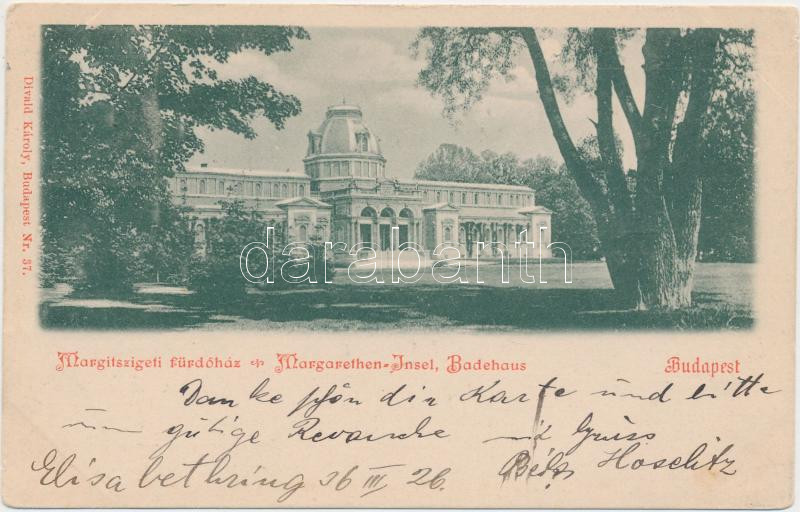 Divald Károly, Budapest Nr. 37.
darabanth
Margitszigeti fürdőház Margarethen-Insel, Badehaus
Budapest
Danke schön die Karte und bitte
um gütige Revanche mit Gruss
Béla Hoselitz
Elisabethring 36 III. 26.